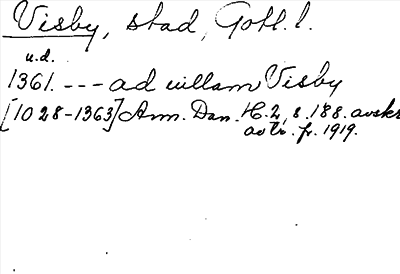 Visby, stad, Gotl. l.
u.d.
1361. --- ad villam Visby
[1028-1363] Ann. Dan. H. 2, s. 188. avskr.
av tr. fr. 1919.